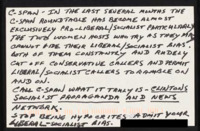 C-SPAN - IN THE LAST SEVERAL MONTHS THE
C-SPAN ROUNDTABLE HAS BECOME ALMOST
EXCLUSIVELY PRO-LIBERAL/SOCIALIST PARTICULARLY
THE TWO WOMEN HOST WHO TRY AS THEY MAY
CANNOT HIDE THEIR LIBERAL/SOCIALIST BIAS.
BOTH OF THEM CONSTANTLY AND RUDELY
CUT OFF CONSERVATIVE CALLERS AND PERMIT
LIBERAL/SOCIALIST CALLERS TO RAMBLE ON
AND ON.
CALL C-SPAN WHAT IT TRULY IS - CLINTON'S
SOCIALIST PROPAGANDA AND NEWS
NETWORK.
STOP BEING HYPOCRITES ADMIT YOUR
LIBERAL-SOCIALIST BIAS.